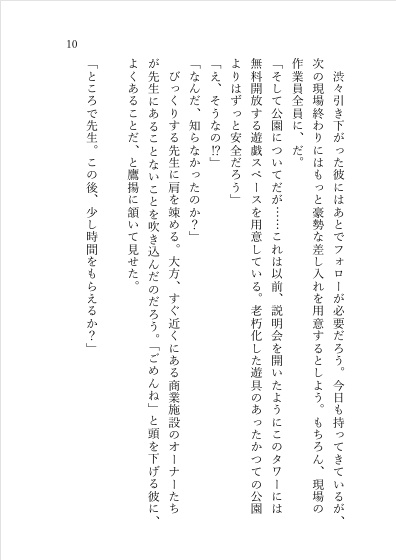 10
渋々引き下がった彼にはあとでフォローが必要だろう。今日も持ってきているが、
次の現場終わりにはもっと豪勢な差し入れを用意するとしよう。もちろん、現場の
作業員全員に、だ。
「そして公園についてだが……これは以前、説明会を開いたようにこのタワーには
無料開放する遊戯スペースを用意している。老朽化した遊具のあったかつての公園
よりはずっと安全だろう」
「え、そうなの!?」
「なんだ、知らなかったのか?」
びっくりする先生に肩を竦める。大方、すぐ近くにある商業施設のオーナーたち
が先生にあることないことを吹き込んだのだろう。「ごめんね」と頭を下げる彼に、
よくあることだ、と鷹揚に頷いて見せた。
「ところで先生。この後、少し時間をもらえるか?」